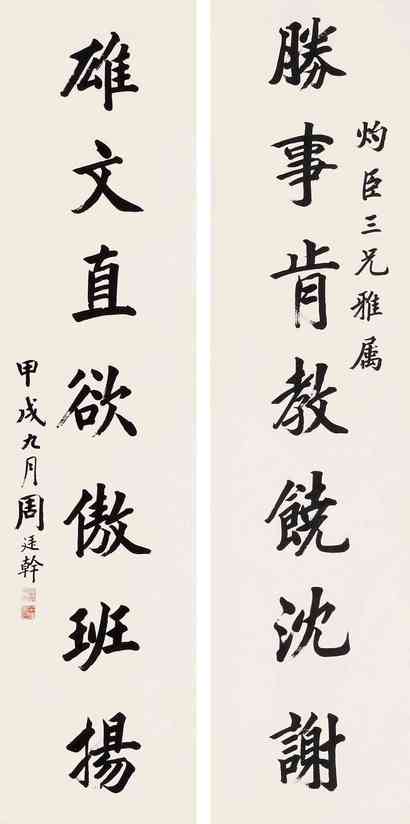 灼臣三兄雅属
勝事肯教饒沈謝
雄文直欲傲班揚
甲戌九月周廷幹